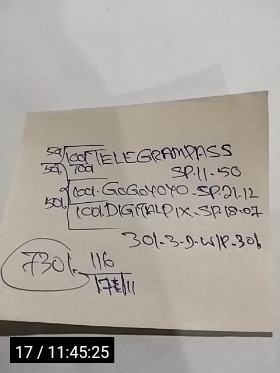 50/ 100/. TELEGRAMPASS
50/ 700/ SP.11.50
100/. GOGOYOYO.SP.21.12
50/ 100/.DIGITALPIX.SP.18.07
30/.3.D.W/P.30/
730/. 116
17 / 11:45:25